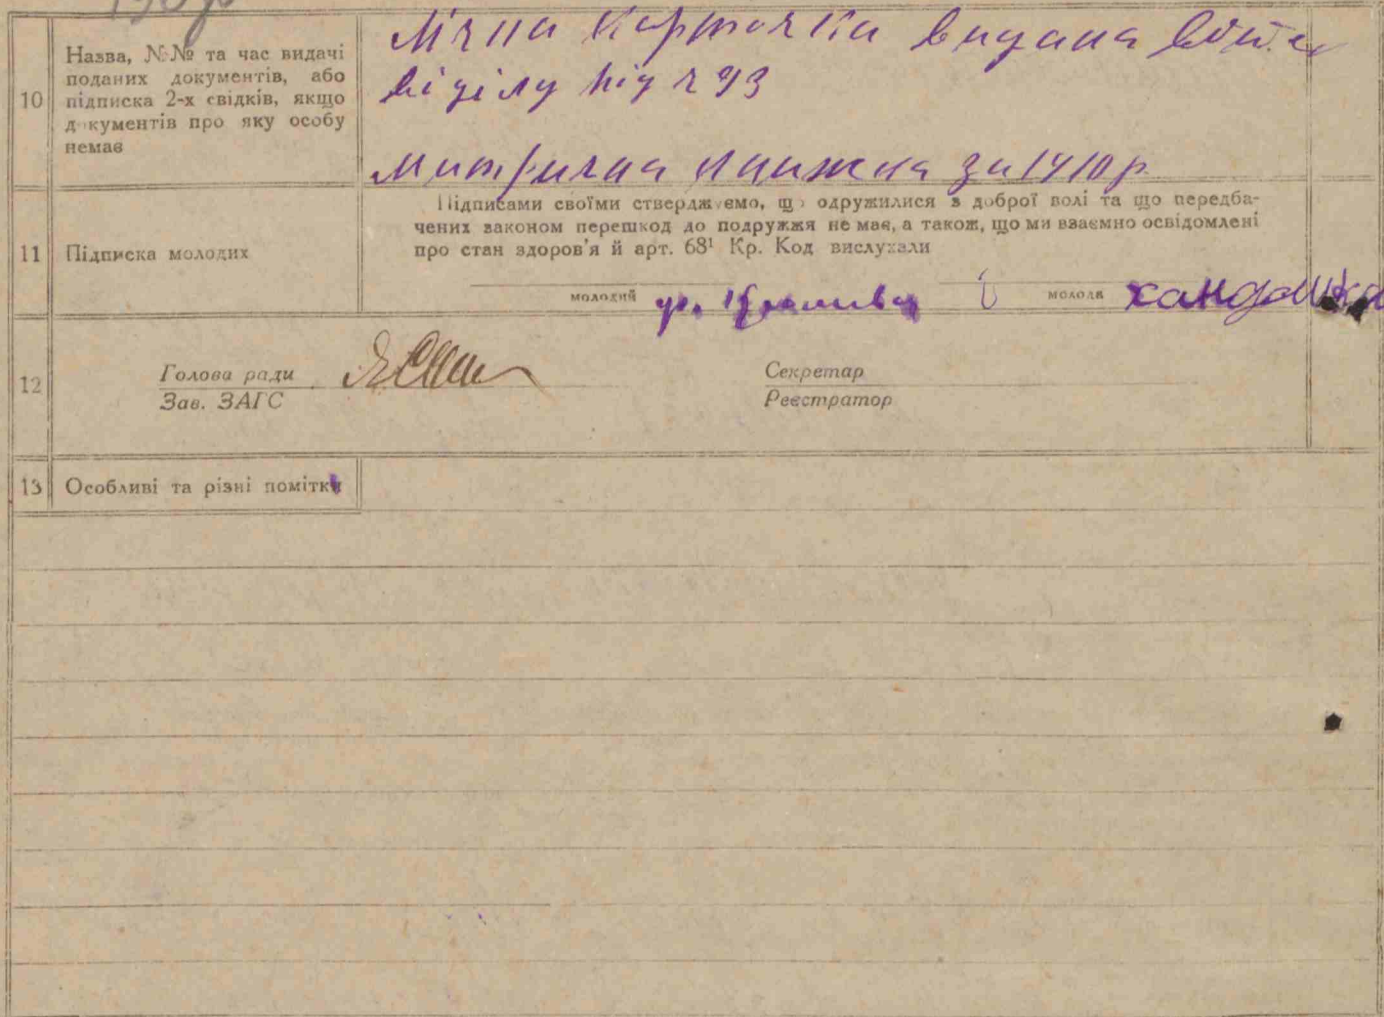 10
Назва, №№ та час видачі
поданих документів, або
підписка 2-х свідків, якщо
документів про яку особу
немає
карточка видана
віділу під ч 93
Метрична книжка за 1910 р.
11
Підписка молодих
Підписами своїми стверджуємо, що одружилися з доброї волі та що передба-
чених законом перешкод до подружжя не має, а також, що ми взаємно освідомлені
про стан здоров'я й арт. 68¹ Кр. Код вислухали
молодий
молода
12
Голова ради
Зав. ЗАГС
Секретар
Реєстратор
13
Особливі та різні помітки